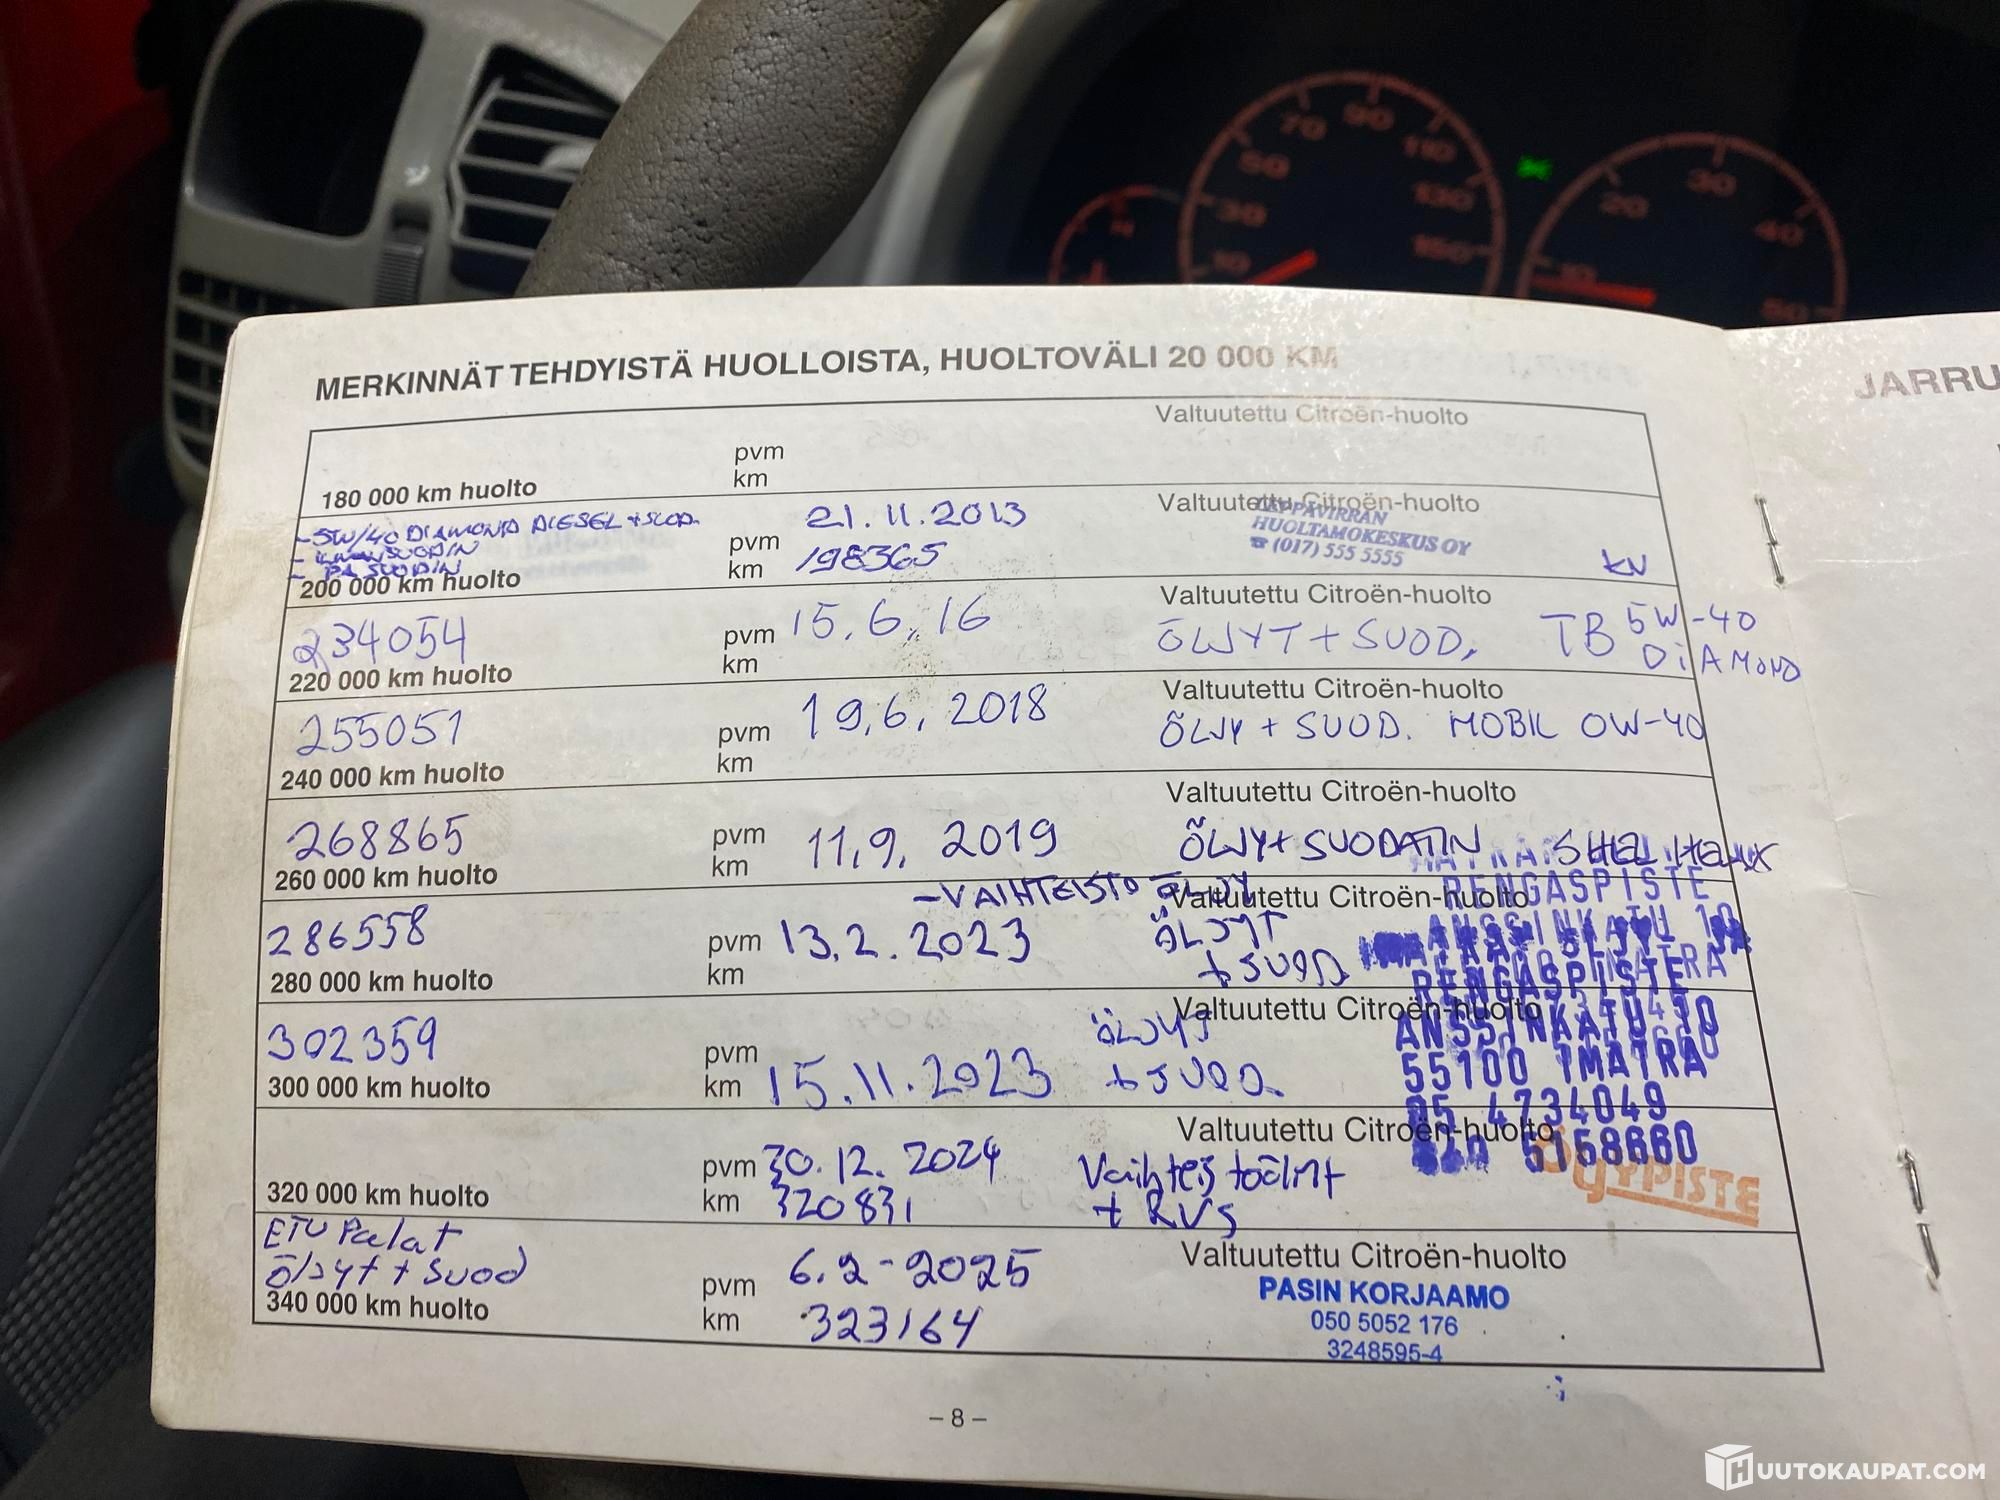 10 30 50 70 90 110 130 150
10 20 30 40 50
MERKINNÄT TEHDYISTÄ HUOLLOISTA, HUOLTOVÄLI 20 000 KM
JARRU
Valtuutettu Citroën-huolto
pvm
km
180 000 km huolto
-5W/40 DIAMOND DIESEL + SUOD.
- PA SUODIN
200 000 km huolto
pvm 21.11.2013
km 198365
Valtuutettu Citroën-huolto
HUOLTAMOKESKUS OY
☎ (017) 555 5555
KV
234054
220 000 km huolto
pvm 15.6.16
km
Valtuutettu Citroën-huolto
ÖLJYT + SUOD. TB 5W-40
DIAMOND
255051
240 000 km huolto
pvm 19.6.2018
km
Valtuutettu Citroën-huolto
ÖLJY + SUOD. MOBIL 0W-40
268865
260 000 km huolto
pvm 11.9.2019
km
Valtuutettu Citroën-huolto
ÖLJY + SUODATIN SHEL HELIX
- VAIHTEISTO ÖLJY
286558
280 000 km huolto
pvm 13.2.2023
km
Valtuutettu Citroën-huolto
ÖLJYT
+ SUOD.
RENGASPISTE
ANSSINKATU 10
302359
300 000 km huolto
pvm
km 15.11.2023
Valtuutettu Citroën-huolto
ÖLJYT
+ SUOD.
RENGASPISTE
ANSSINKATU 10
55100 IMATRA
05 4734049
5158660
320 000 km huolto
pvm 30.12.2024
km 320831
Valtuutettu Citroën-huolto
Vaihteistoöljyt
+ RVS
ÖLJYPISTE
ETU Palat
öljyt + suod
340 000 km huolto
pvm 6.2-2025
km 323164
Valtuutettu Citroën-huolto
PASIN KORJAAMO
050 5052 176
3248595-4
– 8 –
HUUTOKAUPAT.COM